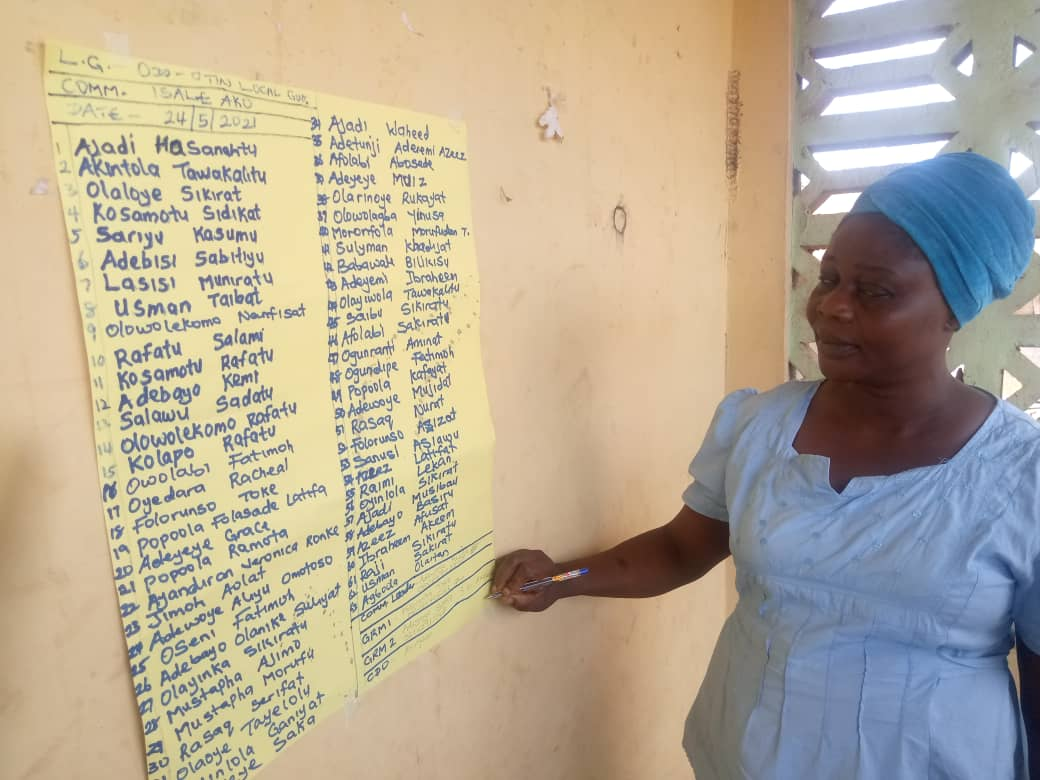 L.G. - ODO-OTIN LOCAL GOV.
COMM. ISALE AKO
DATE - 24/5/2021
1 Ajadi Hasanatu
2 Akintola Tawakalitu
3 Olaloye Sikirat
4 Kosamotu Sidikat
5 Sariyu Kasumu
6 Adebisi Sabitiyu
7 Lasisi Muniratu
8 Usman Taibat
9 Olowolekomo Narfisat
10 Rafatu Salami
11 Kosamotu Rafatu
12 Adebayo Kemi
13 Salawu Sadatu
14 Olowolekomo Rafatu
15 Kolapo Rafatu
16 Owolabi Fatimoh
17 Oyedara Racheal
18 Folorunso Toke
19 Popoola Folasade Lattfa
20 Adeyeye Grace
21 Popoola Ramota
22 Ajandiran Veronica Ronke
23 Jimoh Aolat
24 Adewoye Aliyu Omotoso
25 Oseni Fatimoh
26 Adebayo Olanike Suliyat
27 Olayinka Sikiratu
28 Mustapha Ajimo
29 Mustapha Morufu
30 Rasaq Serifat
Olaoye Tayelolu
Ganiyat
Saka
Ajadi Waheed
Adetunji Aderemi Azeez
Afolabi Abosede
Adeyeye Muiz
Olarinoye Rukayat
Olowolagba Yinusa
Moronfola Morufudeen T.
Sulyman Khadijat
Babawale Bilikisu
Adeyemi Ibraheem
Olayiwola Tawakalitu
Saibu Sikiratu
Afolabi Sakiratu
Ogunranti Aminat
Ogundipe Fatimoh
Popoola Kafayat
Adewoye Mujidat
Rasaq Nurat
Folorunso Azizat
Sanusi Asiawu
Azeez Lattfat
Raimi Lekan
Oyinlola Sikirat
Ajadi Musibau
Adebayo Basitu
Azeez Afusat
Ibraheem Akeem
Raji Sikiratu
Usman Sakirat
Agboola
Comm. Leader
GRM 1
GRM 2
CDO